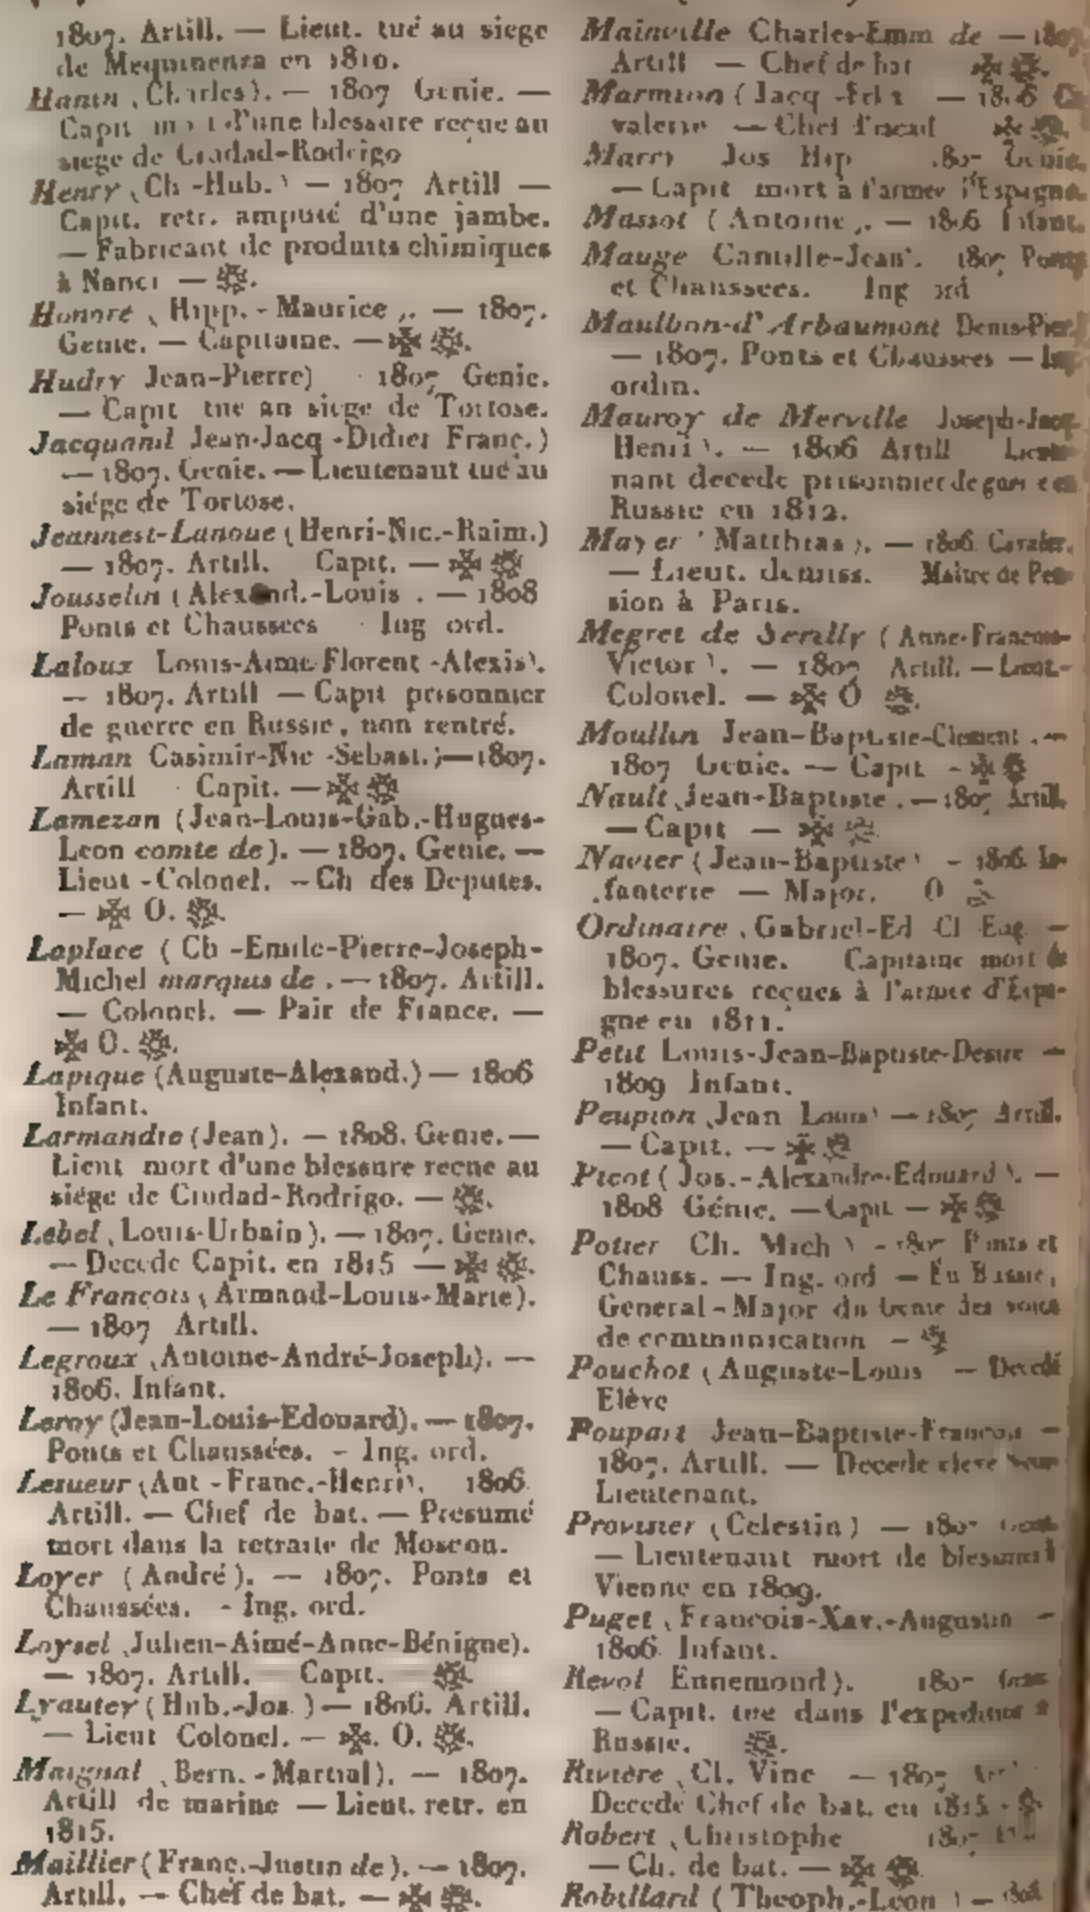 1807. Artill. — Lieut. tué au siege
de Mequinenza en 1810.
Hanin (Charles). — 1807 Genie. —
Capit mort d'une blessure reçue au
siege de Ciudad-Rodrigo
Henry (Ch -Hub.) — 1807 Artill —
Capit. retr. amputé d'une jambe.
— Fabricant de produits chimiques
à Nanci — ❂.
Honoré (Hipp. - Maurice). — 1807.
Genie. — Capitaine. — ✠ ❂.
Hudry Jean-Pierre) 1807 Genie.
— Capit tue au siege de Tortose.
Jacquand Jean-Jacq -Didier Franç.)
— 1807. Genie. — Lieutenant tué au
siége de Tortose.
Jeannest-Lanoue (Henri-Nic.-Raim.)
— 1807. Artill. Capit. — ✠ ❂
Jousselin (Alexand.-Louis . — 1808
Ponts et Chaussees Ing ord.
Laloux Louis-Aime Florent -Alexis).
— 1807. Artill — Capit prisonnier
de guerre en Russie, non rentré.
Laman Casimir-Nic -Sebast.) — 1807.
Artill Capit. — ✠ ❂
Lamezan (Jean-Louis-Gab.-Hugues-
Leon comte de). — 1807. Genie. —
Lieut -Colonel. - Ch des Deputes.
— ✠ O. ❂.
Laplace (Ch -Emile-Pierre-Joseph-
Michel marquis de . — 1807. Artill.
— Colonel. — Pair de France. —
✠ O. ❂.
Lapique (Auguste-Alexand.) — 1806
Infant.
Larmandie (Jean). — 1808. Genie. —
Lieut mort d'une blessure recue au
siége de Ciudad-Rodrigo. — ❂.
Lebel (Louis-Urbain). — 1807. Genie.
— Decede Capit. en 1815 — ✠ ❂.
Le François (Armand-Louis-Marie).
— 1807 Artill.
Legroux (Antoine-André-Joseph). —
1806. Infant.
Leroy (Jean-Louis-Edouard). — 1807.
Ponts et Chaussées. - Ing. ord.
Lesueur (Ant - Franc.-Henri). 1806
Artill. — Chef de bat. — Presumé
mort dans la retraite de Moscou.
Loyer (André). — 1807. Ponts et
Chaussées. - Ing. ord.
Loysel (Julien-Aimé-Anne-Bénigne).
— 1807. Artill. Capit. ❂.
Lyautey (Hub.-Jos ) — 1806. Artill.
— Lieut Colonel. — ✠. O. ❂.
Maignal (Bern. - Martial). — 1807.
Artill de marine — Lieut. retr. en
1815.
Maillier (Franç.-Justin de). — 1807.
Artill. — Chef de bat. — ✠ ❂.
Mainville Charles-Emm de — 1807
Artill — Chef de bat ✠ ❂.
Marmion (Jacq — 1806
valerie — Chef ✠ ❂.
Jos Hip 1807 Genie.
— Capit mort à l'armee d'Espagne.
Massot (Antoine). — 1806 Infant.
Mauge Camille-Jean). 1807 Ponts
et Chaussees. Ing ord
Maulbon-d'Arbaumont Denis-Pier.
— 1807. Ponts et Chaussees — Ing
ordin.
Mauroy de Merville Joseph-Jacq
Henri). — 1806 Artill Lieute-
nant decede prisonnier de guerre en
Russie en 1812.
Mayer (Matthias). — 1806 Cavaler.
— Lieut. demiss. Maitre de Pen-
sion à Paris.
Megret de Serilly (Anne-Francois-
Victor). — 1807 Artill. — Lieut.-
Colonel. — ✠ O ❂.
Moullin Jean-Baptiste-Clement . —
1807 Genie. — Capit - ✠ ❂
Nault Jean-Baptiste . — 1807 Artill.
— Capit — ✠ ❂
Navier (Jean-Baptiste) - 1806 In-
fanterie — Major. O ❂
Ordinaire (Gabriel-Ed Cl Eug —
1807. Genie. Capitaine mort de
blessures reçues à l'armee d'Espa-
gne en 1811.
Petit Louis-Jean-Baptiste-Desire —
1809 Infant.
Peupion Jean Louis) — 1807 Artill.
— Capit. — ✠ ❂
Picot (Jos.-Alexandre-Edouard). —
1808 Génie. — Capit — ✠ ❂
Potier Ch. Mich ) - 1807 Ponts et
Chauss. — Ing. ord — En Russie,
General-Major du Genie des voies
de communication - ❂
Pouchot (Auguste-Louis — Decedé
Elève
Poupart Jean-Baptiste-Francois —
1807. Artill. — Decede eleve Sous-
Lieutenant.
(Celestin) — 1807
— Lieutenant mort de blessures
Vienne en 1809.
Puget (Francois-Xav.-Augustin -
1806 Infant.
Revol Ennemond). 1807
— Capit. tue dans l'expedition
Russie. ❂.
Rivière (Cl. Vinc — 1807
Decede Chef de bat. en 1815 - ❂
Robert (Christophe 1807
— Ch. de bat. — ✠ ❂
Robillard (Theoph.-Leon ) — 1808